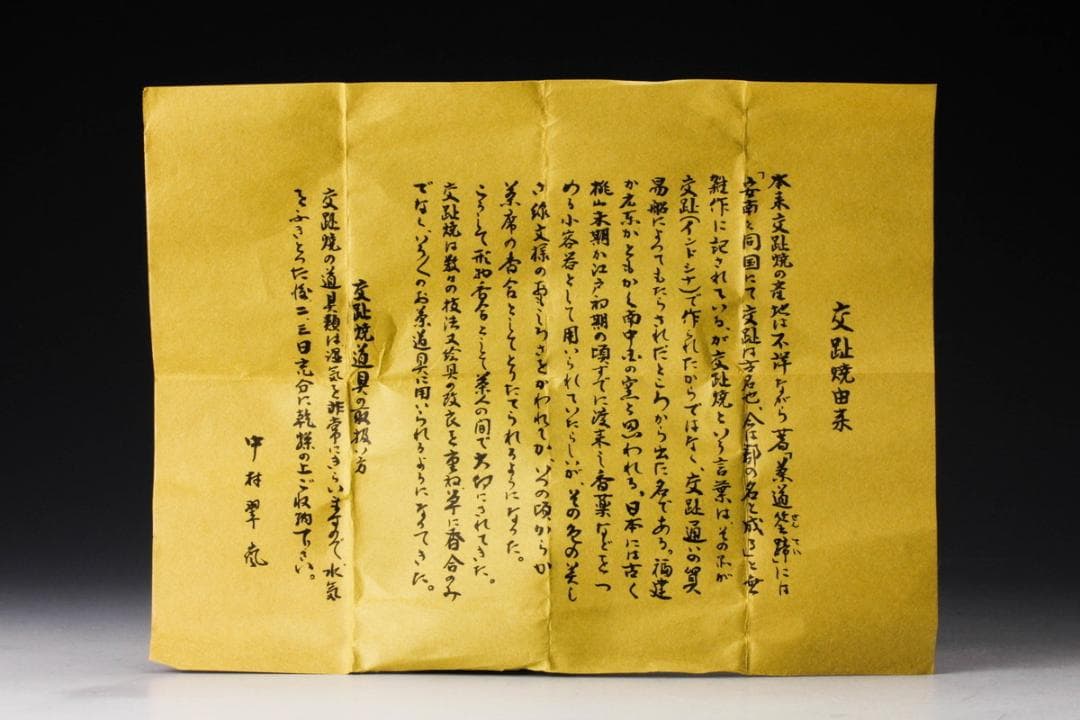 交趾焼由来
本来交趾焼の産地は不詳ながら著「茶道筌蹄」には
せんてい
「安南と同国にて交趾は方名也、今は郡の名と成る」と無
雑作に記されている、が交趾焼という言葉はその糸が
交趾(インドシナ)で作られたからではなく、交趾通いの貿
易船によってもたらされたところから出た名である。福建
か広東かともかく南中国の窯と思われる。日本には古く
桃山末期か江戸初期の頃すでに渡来し香薬などをつ
める小容器として用いられていたらしいが、その色の美し
さ、線文様のおもしろさをかわれてか、いつの頃からか
茶席の香合としてとりたてられるようになった。
こうして形物香合として茶人の間で大切にされてきた。
交趾焼は数々の技法又絵具の改良を重ね、単に香合のみ
でなく、いろ〱のお茶道具に用いられるようになってきた。
交趾焼道具の取扱い方
交趾焼の道具類は湿気を非常にきらいますので、水気
をふきとった後二、三日充分に乾燥の上ご収納下さい。
中村翠嵐